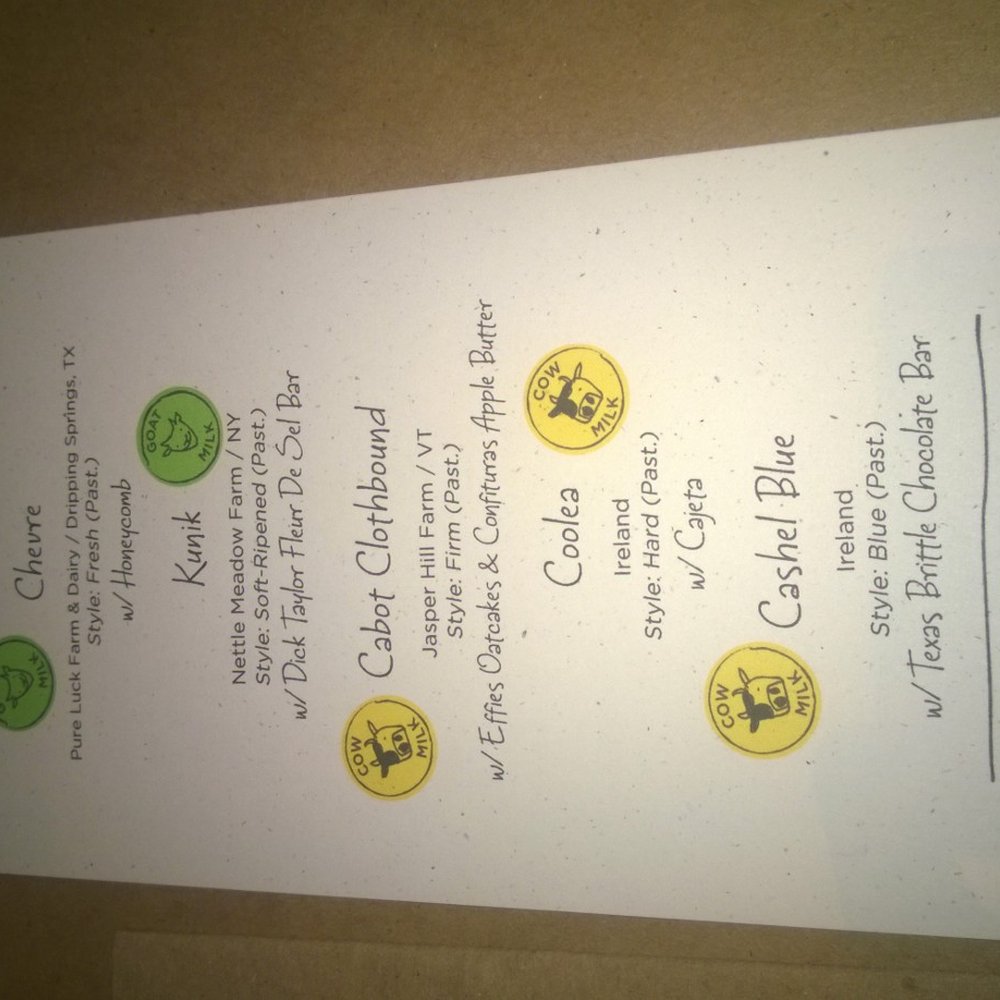 Chevre
Pure Luck Farm & Dairy / Dripping Springs, TX
Style: Fresh (Past.)
w/ Honeycomb
MILK
Kunik
GOAT
MILK
Nettle Meadow Farm / NY
Style: Soft-Ripened (Past.)
w/ Dick Taylor Fleur De Sel Bar
COW
MILK
Cabot Clothbound
Jasper Hill Farm / VT
Style: Firm (Past.)
w/ Effies Oatcakes & Confituras Apple Butter
Coolea
COW
MILK
Ireland
Style: Hard (Past.)
w/ Cajeta
COW
MILK
Cashel Blue
Ireland
Style: Blue (Past.)
w/ Texas Brittle Chocolate Bar